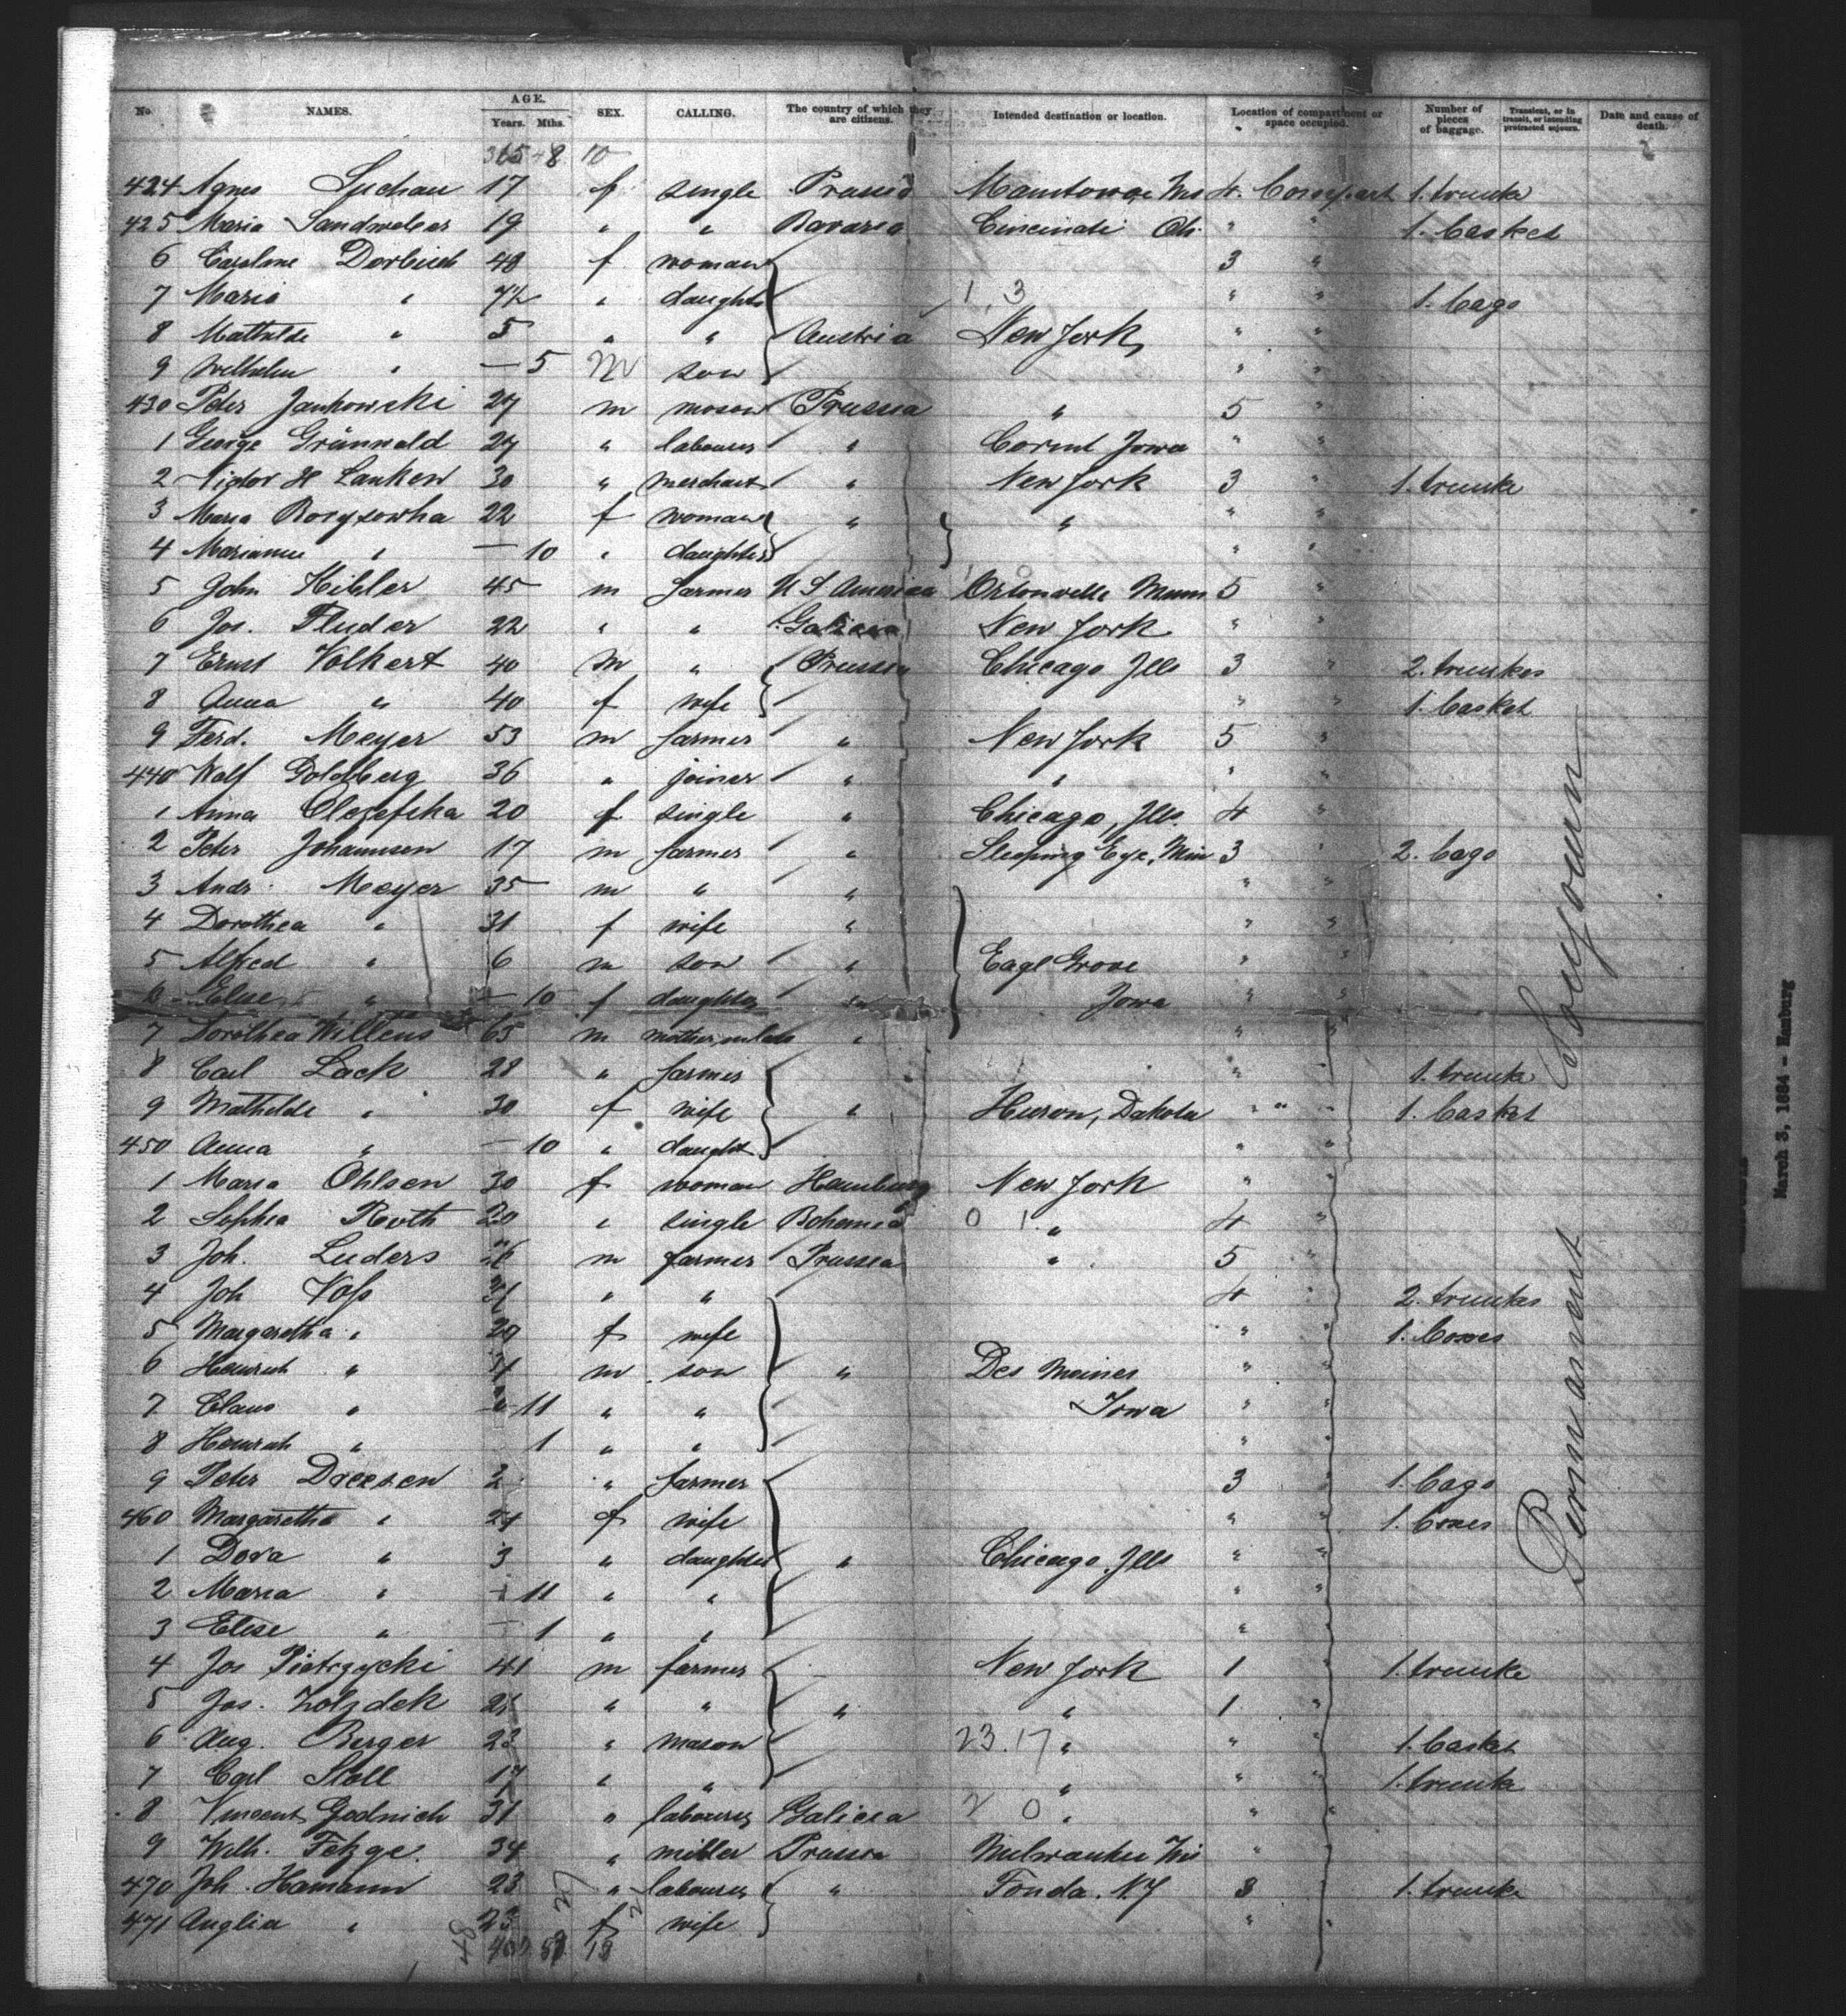 No. NAMES. AGE. Years. Mths. SEX. CALLING. The country of which they are citizens. Intended destination or location. Location of compartment or space occupied. Number of pieces of baggage. Transient, or in transit, or intending protracted sojourn. Date and cause of death.
365 48 10
424 Agnes Suchau 17 f single Prussia 4. Compart 1. trunk
425 Maria 19 " " Bavaria Cincinati Oh. " " 1. basket
6 Caroline 48 f woman 3 "
7 Maria " 7½ " daught 1 3 " " 1. bags
8 Mathilde " 5 " " Austria New York " "
9 Wilhelm " — 5 M son " "
430 Peter Jankowski 27 m mason Prussia " 5 "
1 George Grünwald 27 " labourer " Jowa " "
2 Victor H Lanken 30 " merchant " New York 3 " 1. trunk
3 Maria 22 f woman " " " "
4 Marianne " — 10 " daughter " "
5 John Hibler 45 m farmer U S America Ortonville Minn 5 "
6 Jos. Fluder 22 " " Galicia New York " "
7 Ernst Volkert 40 m " Prussia Chicago Ills 3 " 2. trunkes
8 Anna " 40 f wife " " 1. basket
9 Ferd. Meyer 53 m farmer " New York 5 "
440 Wolf Goldberg 36 " joiner " " " "
1 Anna 20 f single " Chicago, Ills. 4 "
2 Peter Johannsen 17 m farmer " Sleeping Eye, Min 3 " 2. bags
3 Andr. Meyer 35 m " " " "
4 Dorothea " 31 f wife " " "
5 Alfred " 6 m son " Eagl Grove " "
6 Else " — 10 f daughter " Jowa " "
7 Dorothea Willens 65 m mother inlaw " " "
8 Carl Lack 28 " farmer " " 1. trunk
9 Mathilde " 30 f wife " Huron, Dakota " " 1. basket
450 Anna " — 10 " daught " "
1 Maria Ohlsen 30 f woman Hamburg New York " "
2 Sophia Roth 20 " single Bohemia 0 1 " 4 "
3 Joh. Luders 26 m farmer Prussia " 5 "
4 Joh Voss 31 " " 4 " 2. trunkes
5 Margaretha " 29 f wife " " 1. boxes
6 Heinrich " m son " Des Moines "
7 Claus " 11 " " Jowa " "
8 Heinrich " 1 " " " "
9 Peter Dreesen " farmer 3 " 1. bags
460 Margaretha " f wife " " 1. boxes
1 Dora " 3 " daughter " Chicago. Ills " "
2 Maria " — 11 " " " "
3 Elise " — 1 " " "
4 Jos Pietrzycki 41 m farmer New York 1 " 1. trunke
5 Jos. " " " " 1 "
6 Aug. Berger 23 " mason 23.17 " " " 1. basket
7 Carl Stoll 17 " " " " " 1. trunk
8 Vincent Godnich 31 " labourer Galicia 2 0 " " "
9 Wilh. Fetzge. 34 " miller Prussia Milwaukee Wis "
470 Joh. Hamann 23 " labourer " Fonda. N.Y 3 " 1. trunk
471 Anglia " 23 f wife " "
Permanent Soujourn
March 3, 1884 - Hamburg